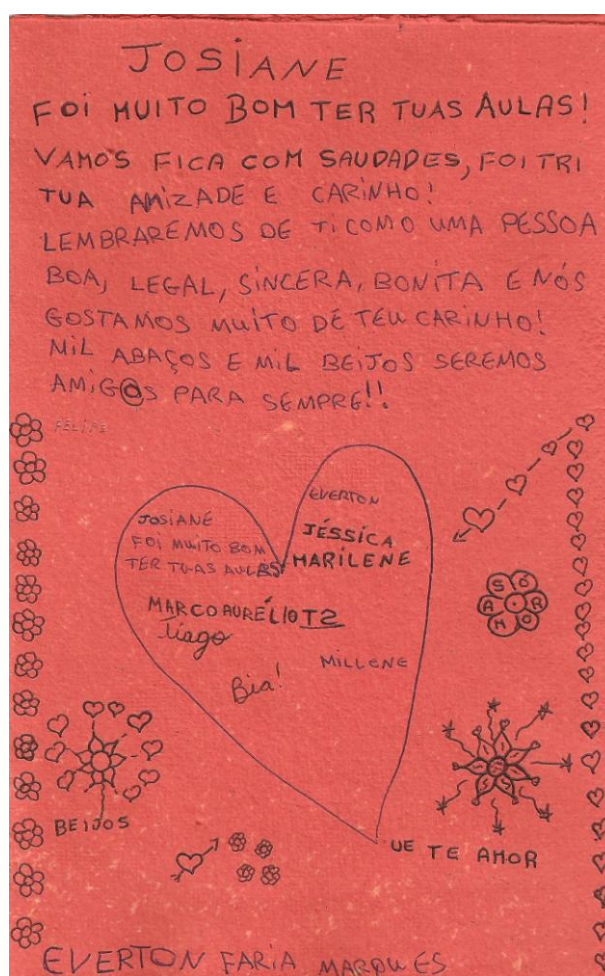 JOSIANE
FOI MUITO BOM TER TUAS AULAS!
VAMOS FICA COM SAUDADES, FOI TRI
TUA AMIZADE E CARINHO!
LEMBRAREMOS DE TI COMO UMA PESSOA
BOA, LEGAL, SINCERA, BONITA E NÓS
GOSTAMOS MUITO DE TEU CARINHO!
MIL ABAÇOS E MIL BEIJOS SEREMOS
AMIG@S PARA SEMPRE!!
FELIPE
EVERTON
JOSIANE
FOI MUITO BOM
TER TUAS AULAS
JÉSSICA
MARILENE
MARCO AURÉLIO T2
Tiago
MILLENE
Bia!
SÓ AMOR
BEIJOS
UE TE AMOR
EVERTON FARIA MARQUES